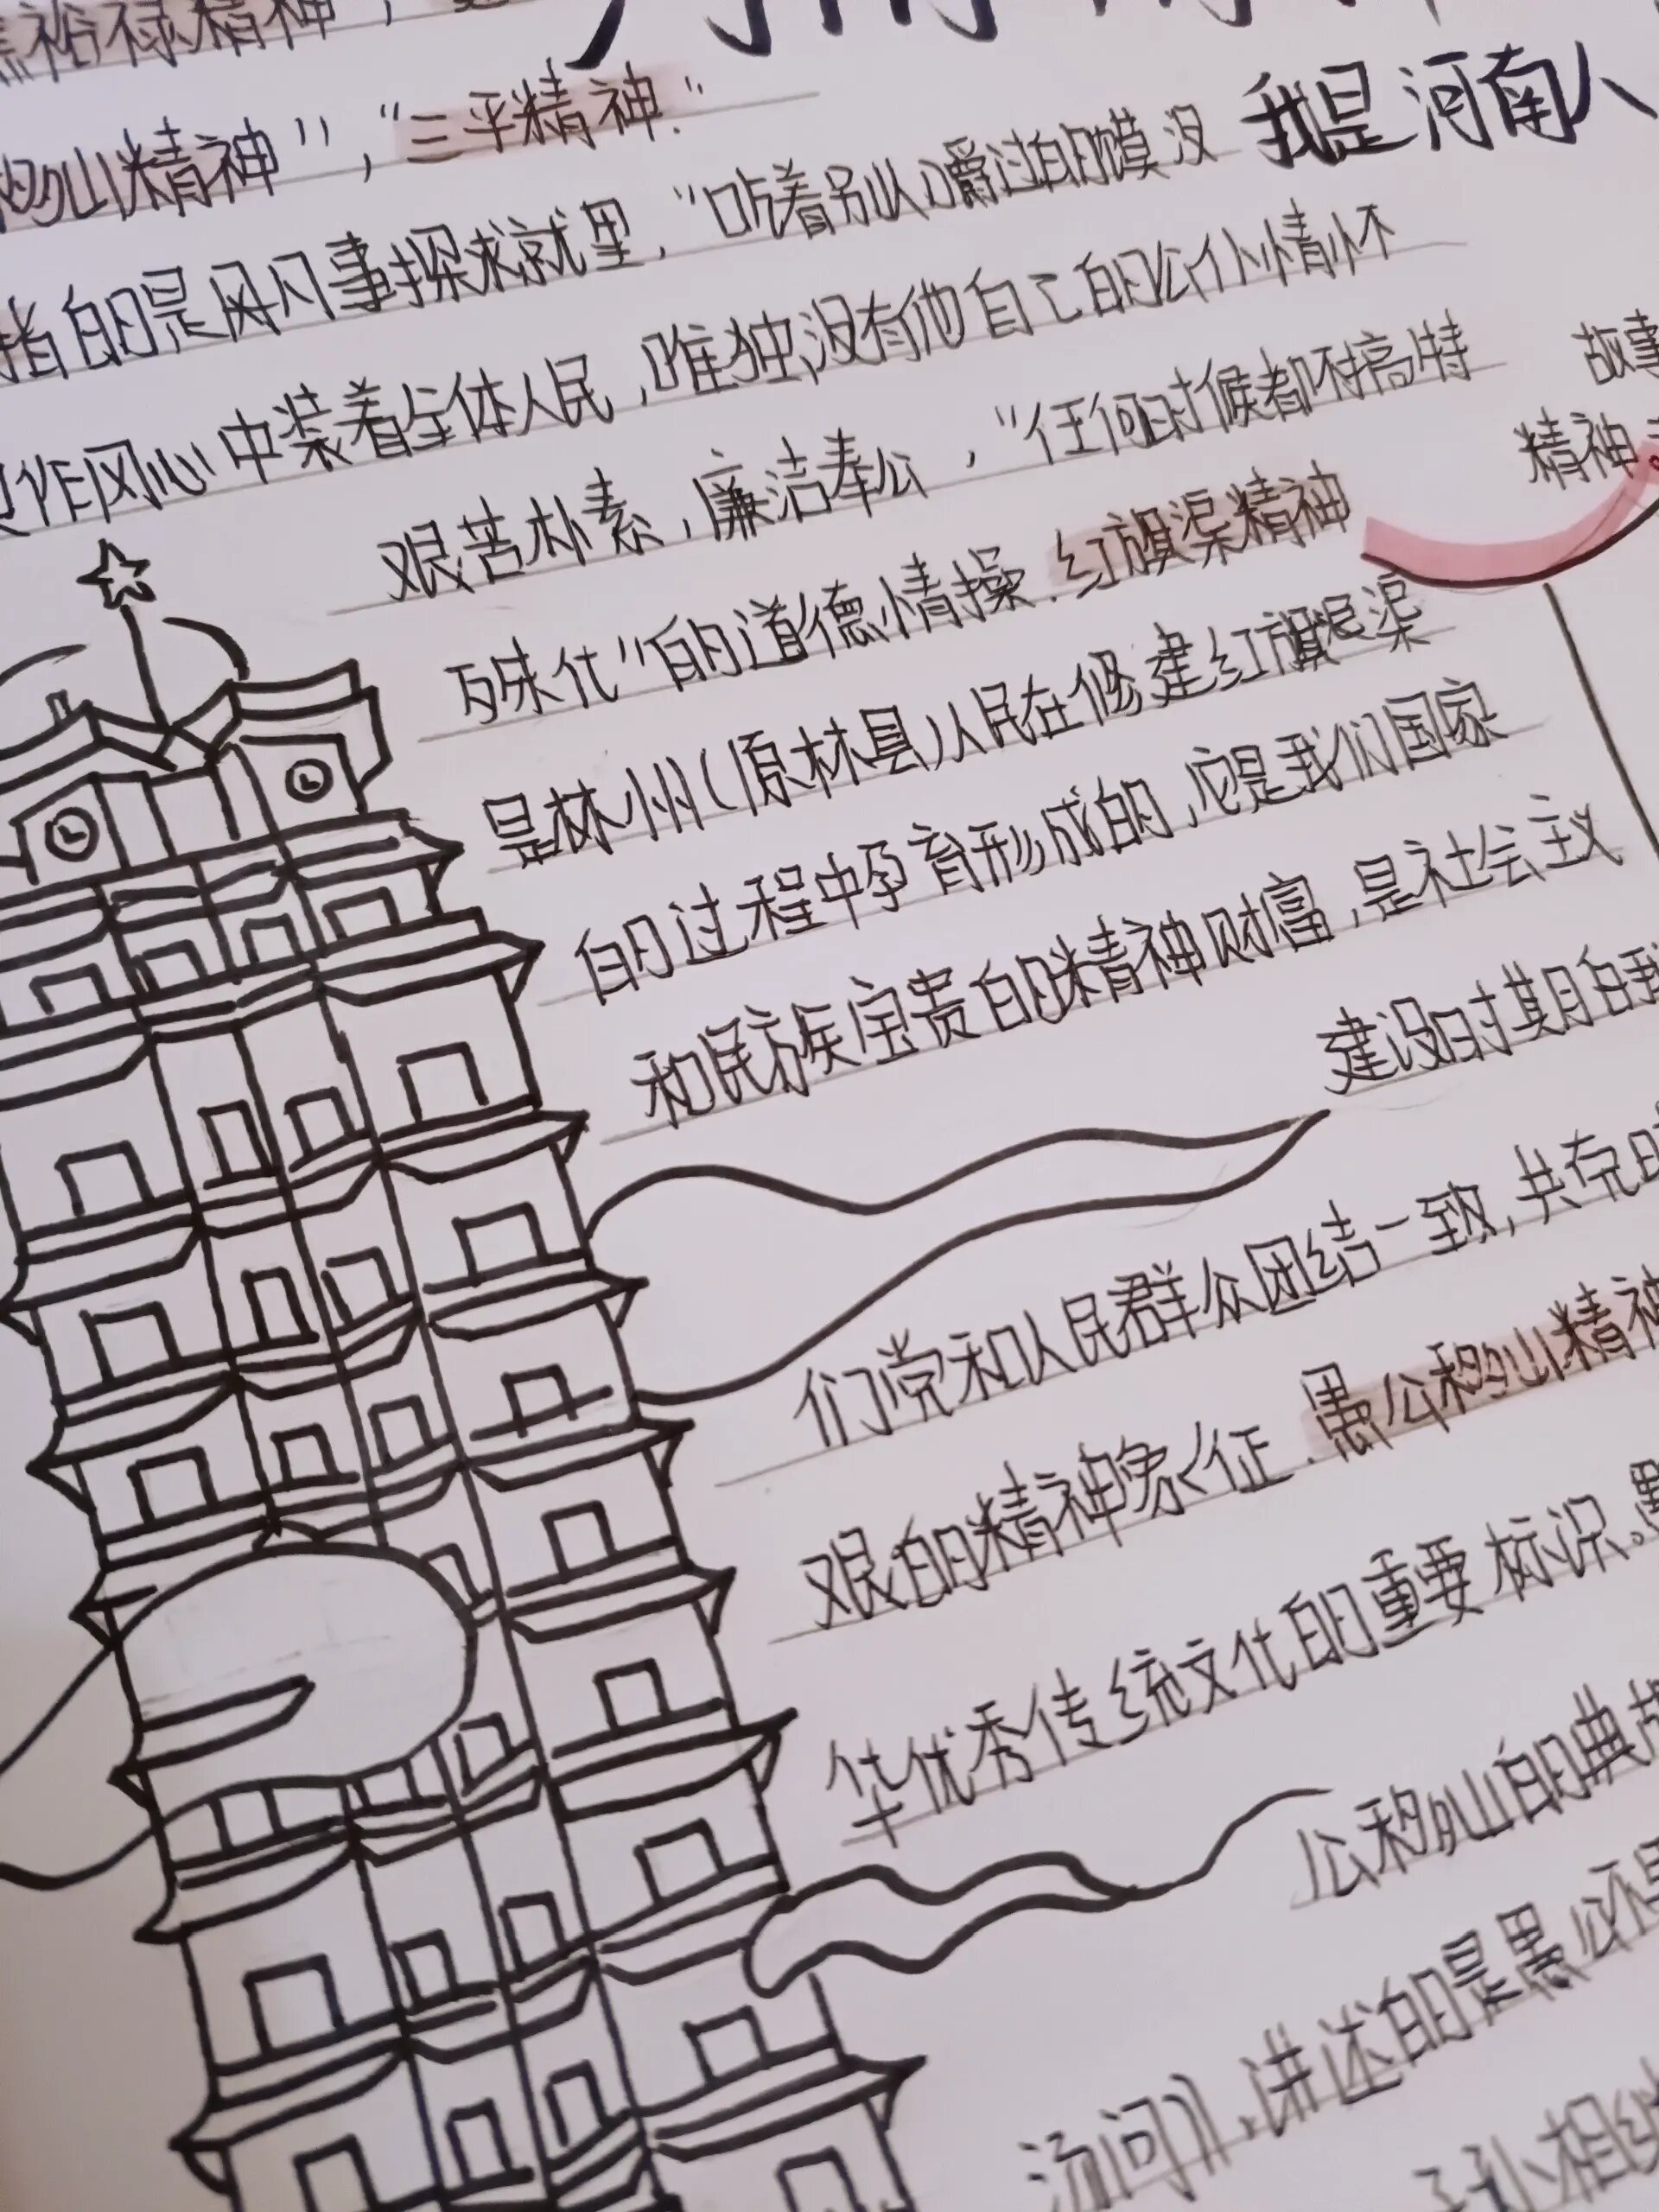 焦裕禄精神",
我是河南人
移山精神",“三平精神."
指的是凤凡事探求就里,“吃着别人嚼过的馍没
作风心中装着全体人民,唯独没有他自己的公仆情怀
故事
艰苦朴素,廉洁奉公,“任何时候都不搞特
精神
殊化”的道德情操.红旗渠精神
是林州(原林县)人民在修建红旗渠
的过程中孕育形成的,它是我们国家
和民族宝贵的精神财富,是社会主义
建设时期自我
们党和人民群众团结一致,共克时
艰的精神象征.愚公移山精神
华优秀传统文化的重要标识。
公移山的典故
汤问》,讲述的是愚公